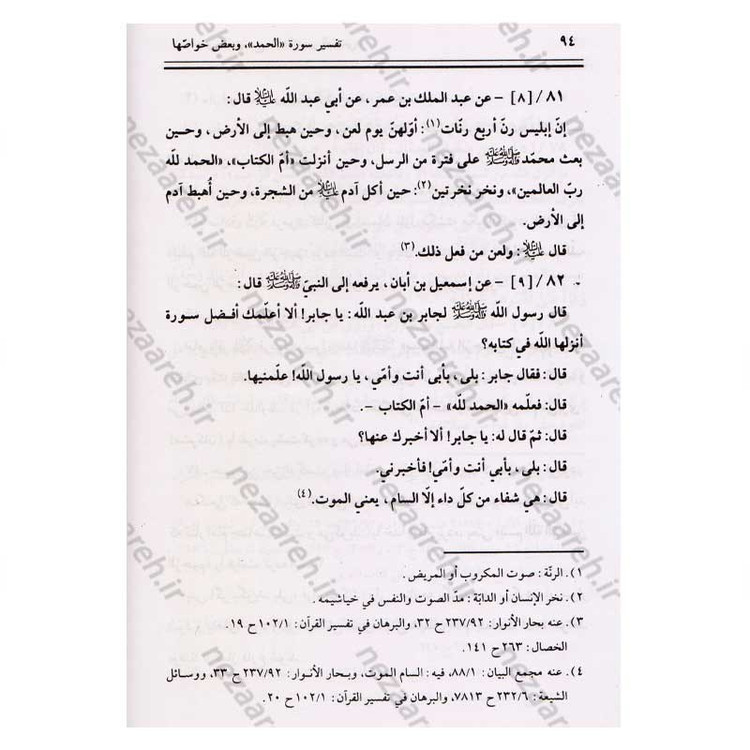 ٩٤ تفسير سورة «الحمد»، وبعض خواصّها
٨١ / [٨] - عن عبد الملك بن عمر، عن أبي عبد الله عليه السلام قال:
إنّ إبليس رنّ أربع رنّات(١): أوّلهنّ يوم لعن، وحين هبط إلى الأرض، وحين
بعث محمّد صلى الله عليه وآله وسلم على فترة من الرسل، وحين أنزلت «أمّ الكتاب»، «الحمد لله
ربّ العالمين»، ونخر نخرتين(٢): حين أكل آدم عليه السلام من الشجرة، وحين أُهبط آدم
إلى الأرض.
قال عليه السلام: ولعن من فعل ذلك.(٣)
٨٢ / [٩] - عن إسمعيل بن أبان، يرفعه إلى النبيّ صلى الله عليه وآله وسلم قال:
قال رسول الله صلى الله عليه وآله وسلم لجابر بن عبد الله: يا جابر! ألا أعلّمك أفضل سورة
أنزلها الله في كتابه؟
قال: فقال جابر: بلى، بأبي أنت وأمّي، يا رسول الله! علّمنيها.
قال: فعلّمه «الحمد لله» - أمّ الكتاب -.
قال: ثمّ قال له: يا جابر! ألا أخبرك عنها؟
قال: بلى، بأبي أنت وأمّي! فأخبرني.
قال: هي شفاء من كلّ داء إلّا السام، يعني الموت.(٤)
١). الرنّة: صوت المكروب أو المريض.
٢). نخر الإنسان أو الدابّة: مدّ الصوت والنفس في خياشيمه.
٣). عنه بحار الأنوار: ٢٣٧/٩٢ ح ٣٢، والبرهان في تفسير القرآن: ١٠٢/١ ح ١٩.
الخصال: ٢٦٣ ح ١٤١.
٤). عنه مجمع البيان: ٨٨/١، فيه: السام الموت، وبحار الأنوار: ٢٣٧/٩٢ ح ٣٣، ووسائل
الشيعة: ٢٣٢/٦ ح ٧٨١٣، والبرهان في تفسير القرآن: ١٠٢/١ ح ٢٠.
nezaareh.ir